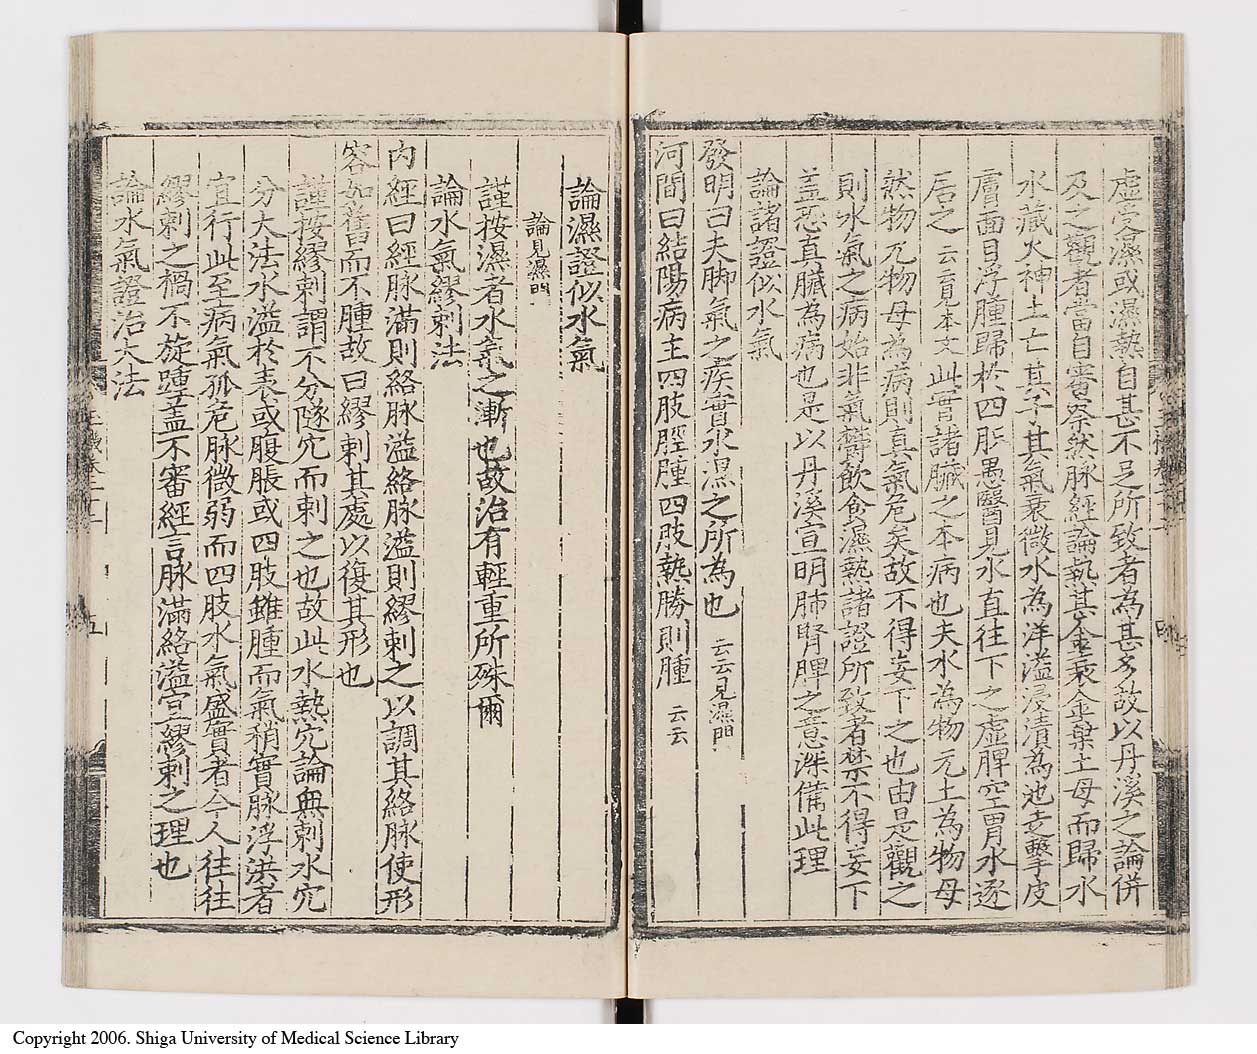 虛实濕或濕熱自甚不足所致者為甚多故以丹溪之論併
及之觀者當自審察然脉經論執其金衰金棄土母而歸水
水藏火神土亡其子其氣衰微水為洋溢浸漬為池走擊皮
膚面目浮腫歸於四肢愚醫見水直往下之虛脾空胃水逐
居之 云云見本文 此皆諸臟之本病也夫水為物元土為物母
然物元物母為病則真氣危矣故不得妄下之也由是觀之
則水氣之病始非氣欝飲食濕熱諸證所致者禁不得妄下
盖恐真臟為病也是以丹溪宣明肺腎脾之意深備此理
論諸證似水氣
發明曰夫脚氣之疾實水濕之所為也 云云見濕門
河間曰結陽病主四肢脛腫四肢熱勝則腫 云云
論濕證似水氣
論見濕門
謹按濕者水氣之漸也故治有輕重所殊爾
論水氣繆刺法
內經曰經脉滿則絡脉溢絡脉溢則繆刺之以調其絡脉使形
容如舊而不腫故曰繆刺其處以復其形也
謹按繆刺謂不分隧穴而刺之也故此水熱穴論無刺水穴
分大法水溢於表或腹脹或四肢雖腫而氣稍實脉浮洪者
宜行此至病氣孤危脉微弱而四肢水氣盛實者今人往往
繆刺之禍不旋踵盖不審經言脉滿絡溢宜繆刺之理也
論水氣證治大法
五